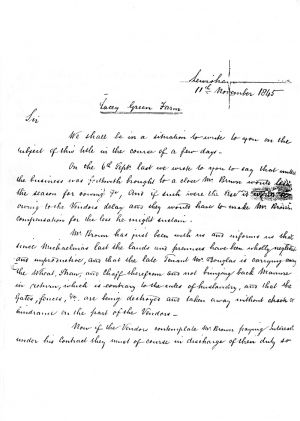 Lewisham
11th November 1845
Lacey Green Farm
Sir
We shall be in a situation to write to you on the
subject of this title in the course of a few days -
On the 6th Sept. last we wrote to you to say that unless
the business was forthwith brought to a close Mr. Brown would lose
the season for sowing &c, and if such were the Case it
owing to the Vendors delay and they would have to make Mr. Brown
compensation for the loss he might sustain -
Mr. Brown has just been with us and informs us that
since Michaelmas last the lands and premises have been wholly neglected
and unproductive, and that the late Tenant Mr. Douglas is carrying away
the Wheat, Straw, and Chaff therefrom and not bringing back Manure
in return, which is contrary to the rules of husbandry, and that the
Gates, fences, &c. are being destroyed and taken away without check or
hindrance on the part of the Vendors -
Now if the Vendors contemplate Mr. Brown paying Interest
under his Contract they must of course in discharge of their duty so